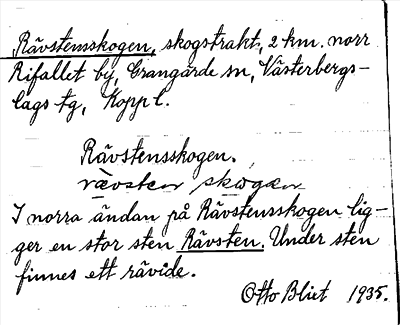 Rävstensskogen, skogstrakt, 2 km. norr
Rifallet by, Grangärde sn, Västerbergs-
lags tg, Kopp l.
Rävstensskogen.
rævsten skogen
I norra ändan på Rävstensskogen lig-
ger en stor sten Rävsten. Under sten
finnes ett rävide.
Otto Blixt 1935.